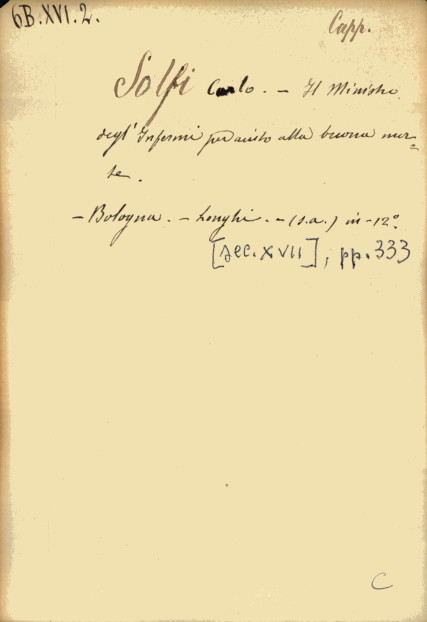 6B.XVI.2.
Capp.
Solfi Carlo. - Il Ministro
degl' Infermi per aiuto alla buona mor=
te.
- Bologna. - Longhi. - (s.a.) in-12º.
[sec. XVII], pp. 333
C